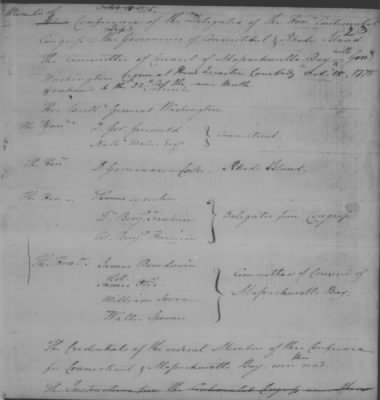 Minutes of
Conference of the Delegates of the Honl. Continental
Congress, The Governors of Connecticut & Rhode Island
The Committee of Council of Massachusetts Bay with Genl
Washington begun at Head Quarters Cambridge Octr 18th 1775
& continued to the 22d of the same Month
General Washington
The Honl. Dy Govr Griswold
Nathl Wales Esqr
Connecticut.
The Honl. D Governour Cook. Rhode Island.
The Hon
Thomas Lynch
Dr Benja Franklin
Col. Benja Harrison
Delegates from Congress
The Honl. James Bowdoin
Col.
James Otis
William Sever
Walter Spooner
Committee of Council of
Massachusetts Bay.
The Credentials of the several Members of the Conference
for Connecticut & Massachusetts Bay were read.
The Instructions from the Continental Congress were then